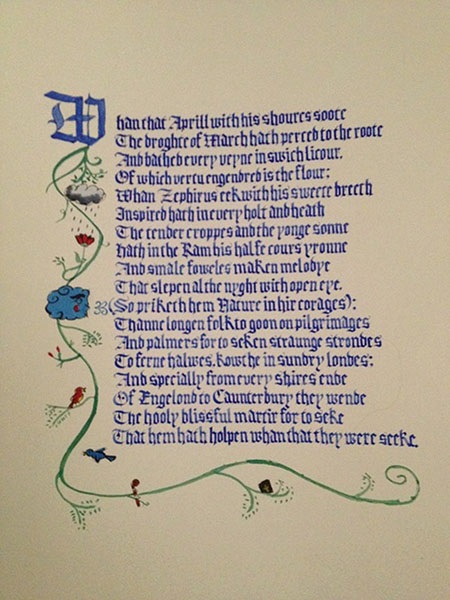 Whan that Aprill with his shoures soote
The droghte of March hath perced to the roote
And bathed every veyne in swich licour.
Of which vertu engendred is the flour;
Whan Zephirus eek with his sweete breeth
Inspired hath in every holt and heath
The tender croppes and the yonge sonne
Hath in the Ram his halfe cours yronne
And smale foweles maken melodye
That slepen al the nyght with open eye.
(So priketh hem Nature in hir corages):
Thanne longen folk to goon on pilgrimages
And palmers for to seken straunge strondes
To ferne halwes. kowthe in sundry londes:
And specially from every shires ende
Of Engelond to Caunterbury they wende
The hooly blissful martir for to seke
That hem hath holpen whan that they were seeke.